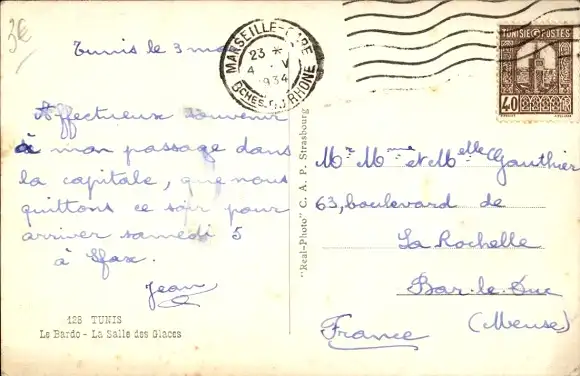 3€
Tunis le 3 mai
MARSEILLE-GARE
23 *
4 - V
1934
BCHES DU RHONE
TUNISIE POSTES
40
Affectueux souvenir
à mon passage dans
la capitale, que nous
quittons ce soir pour
arriver samedi 5
à Sfax.
Jean
128 TUNIS
Le Bardo - La Salle des Glaces
"Real-Photo" C. A. P. Strasbourg
Mr Mme et Melle Gauthier
63, boulevard de
La Rochelle
Bar-le-Duc
(Meuse)
France